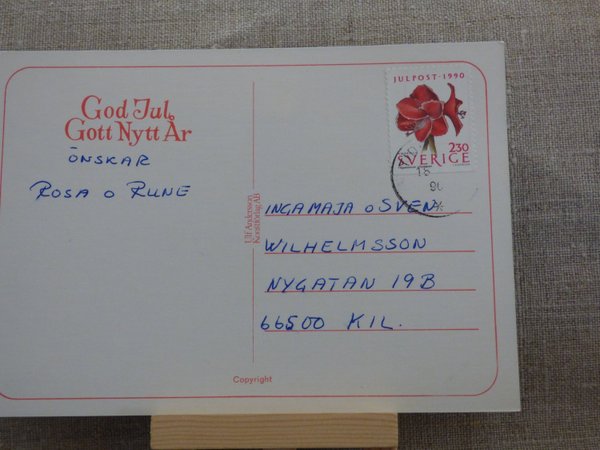 God Jul
Gott Nytt År
ÖNSKAR
ROSA O RUNE
Ulf Andersson
Konstförlag AB
JULPOST · 1990
2.30
SVERIGE
18
90
INGAMAJA O SVEN
WILHELMSSON
NYGATAN 19B
66500 KIL.
Copyright